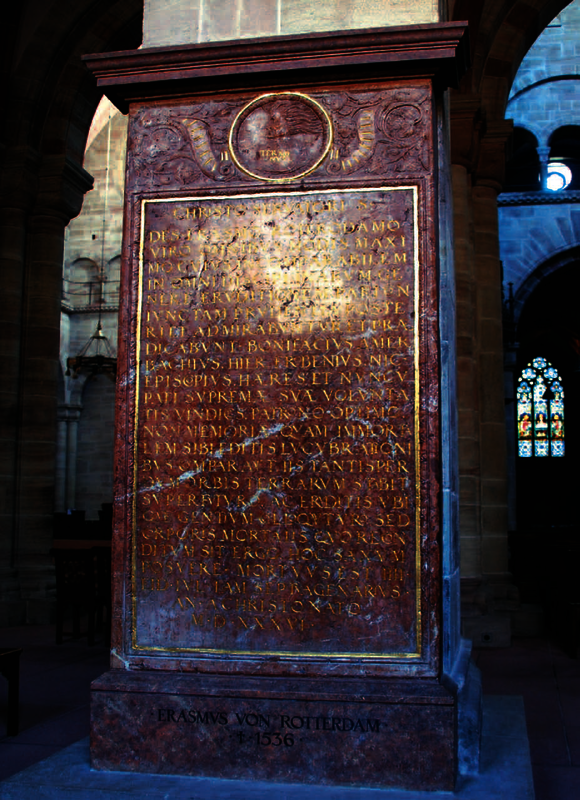 TERMI
NVS
CHRISTO SERVATORI S.
DES. ERASMO ROTERODAMO
VIRO OMNIBVS MODIS MAXI
MO CVIVS INCOMPARABILEM
IN OMNI DISCIPLINARVM GE
NERE ERVDITIONEM PARI
IVNCTAM PRVDENTIA POSTE
RI ET ADMIRABVNTVR ET PRÆ
DICABVNT BONIFACIVS AMER
BACHIVS HIER. FROBENIVS NIC.
EPISCOPIVS HÆRES ET NVNCV
PATI SVPREMÆ SVÆ VOLVNTA
TIS VINDICES PATRONO OPTIMO
NON MEMORIÆ QVAM IMMORTA
LEM SIBI EDITIS LVCVBRATIONI
BVS COMPARAVIT IIS TANTISPER
DVM ORBIS TERRARVM STABIT
SVPERFVTVRO AC ERVDITIS VBI
QVE GENTIVM COLLOQVTVRO SED
CORPORIS MORTALIS QVO RECON
DITVM SIT ERGO HOC SAXVM
POSVERE MORTVVS EST IIII
EID. IVL. IAM SEPTVAGENARIVS
AN. A CHRISTO NATO
M.D.XXXVI
ERASMVS VON ROTTERDAM
† 1536